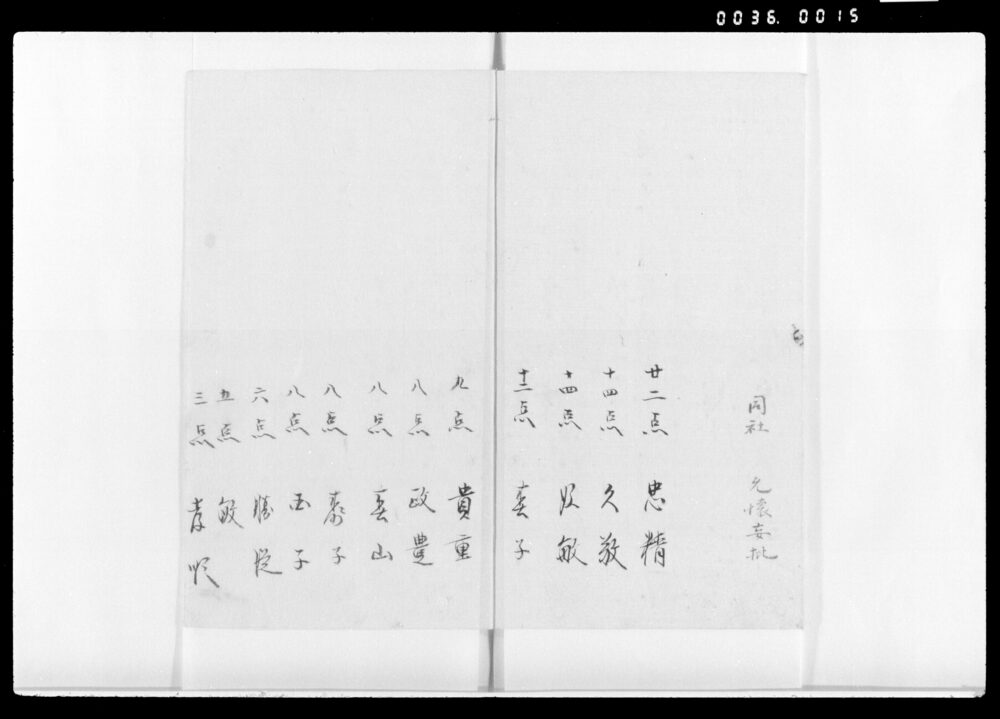 0036.0015
同社 允懐妄批
廿二点 忠精
十四点 久敬
十四点 敏
十三点 子
九点 貴重
八点 政豊
八点 山
八点 泰子
八点 子
六点 勝従
五点 敏
三点 孝順